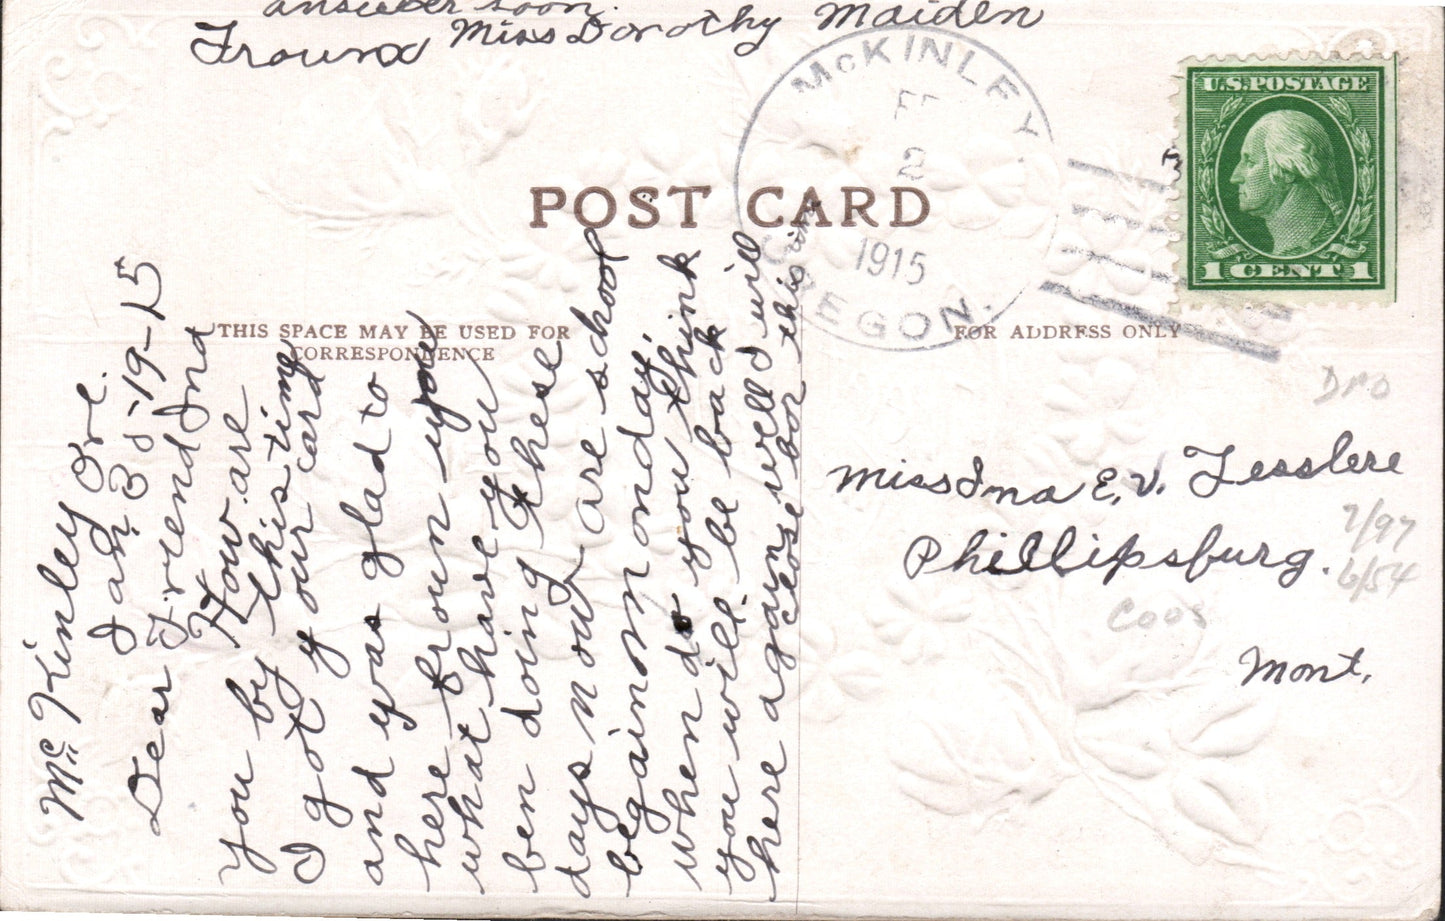 answer soon.
From Miss Dorothy Maiden
McKINLEY.
2
1915
OREGON.
U.S. POSTAGE
1 CENT 1
POST CARD
THIS SPACE MAY BE USED FOR
CORRESPONDENCE
FOR ADDRESS ONLY
Mc Kinley Ore.
Jan 30-19-15
Dear Friend Ina
How are
you by this time
I got your card
and was glad to
here from you
what have you
ben doing these
days now are school
begain monday.
when do you think
you will be back
here again well I will
close for this time
Miss Ina E.V. Lesslere
Phillipsburg.
Mont.
DPO
7/97
6/54
Coos